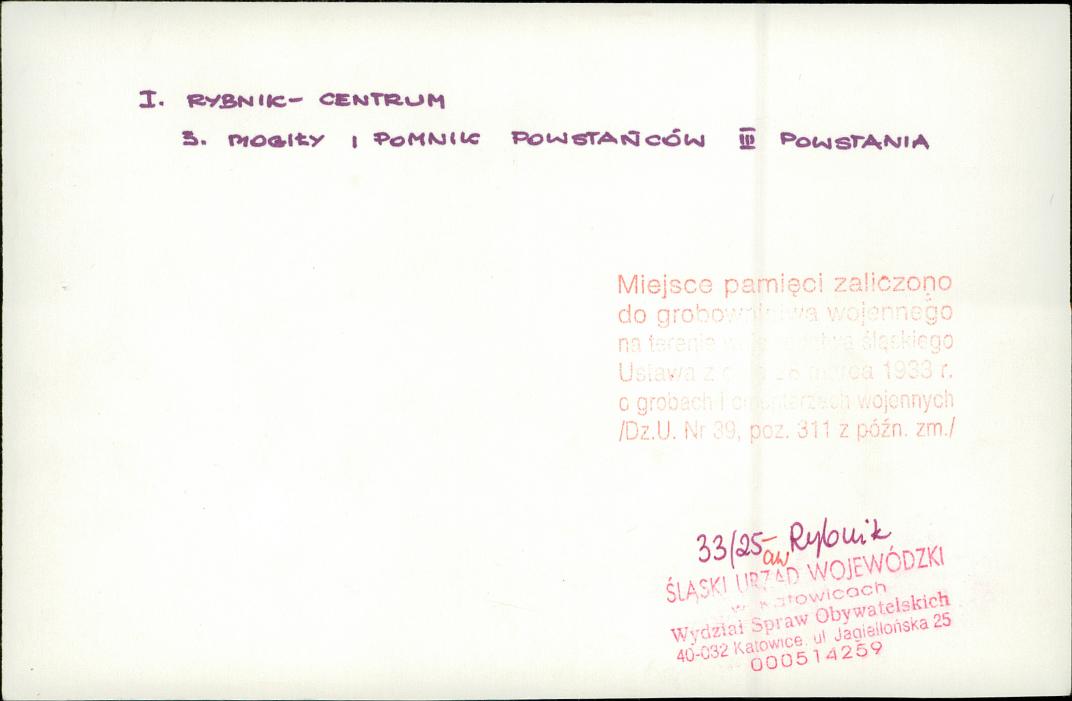 I. RYBNIK- CENTRUM
3. MOGIŁY I POMNIK POWSTAŃCÓW III POWSTANIA
Miejsce pamięci zaliczono
do grobownictwa wojennego
na terenie województwa śląskiego
Ustawa z dnia 28 marca 1933 r.
o grobach i cmentarzach wojennych
/Dz.U. Nr 39, poz. 311 z późn. zm./
33/25- Rybnik
aw
ŚLĄSKI URZĄD WOJEWÓDZKI
w Katowicach
Wydział Spraw Obywatelskich
40-032 Katowice, ul Jagiellońska 25
000514259